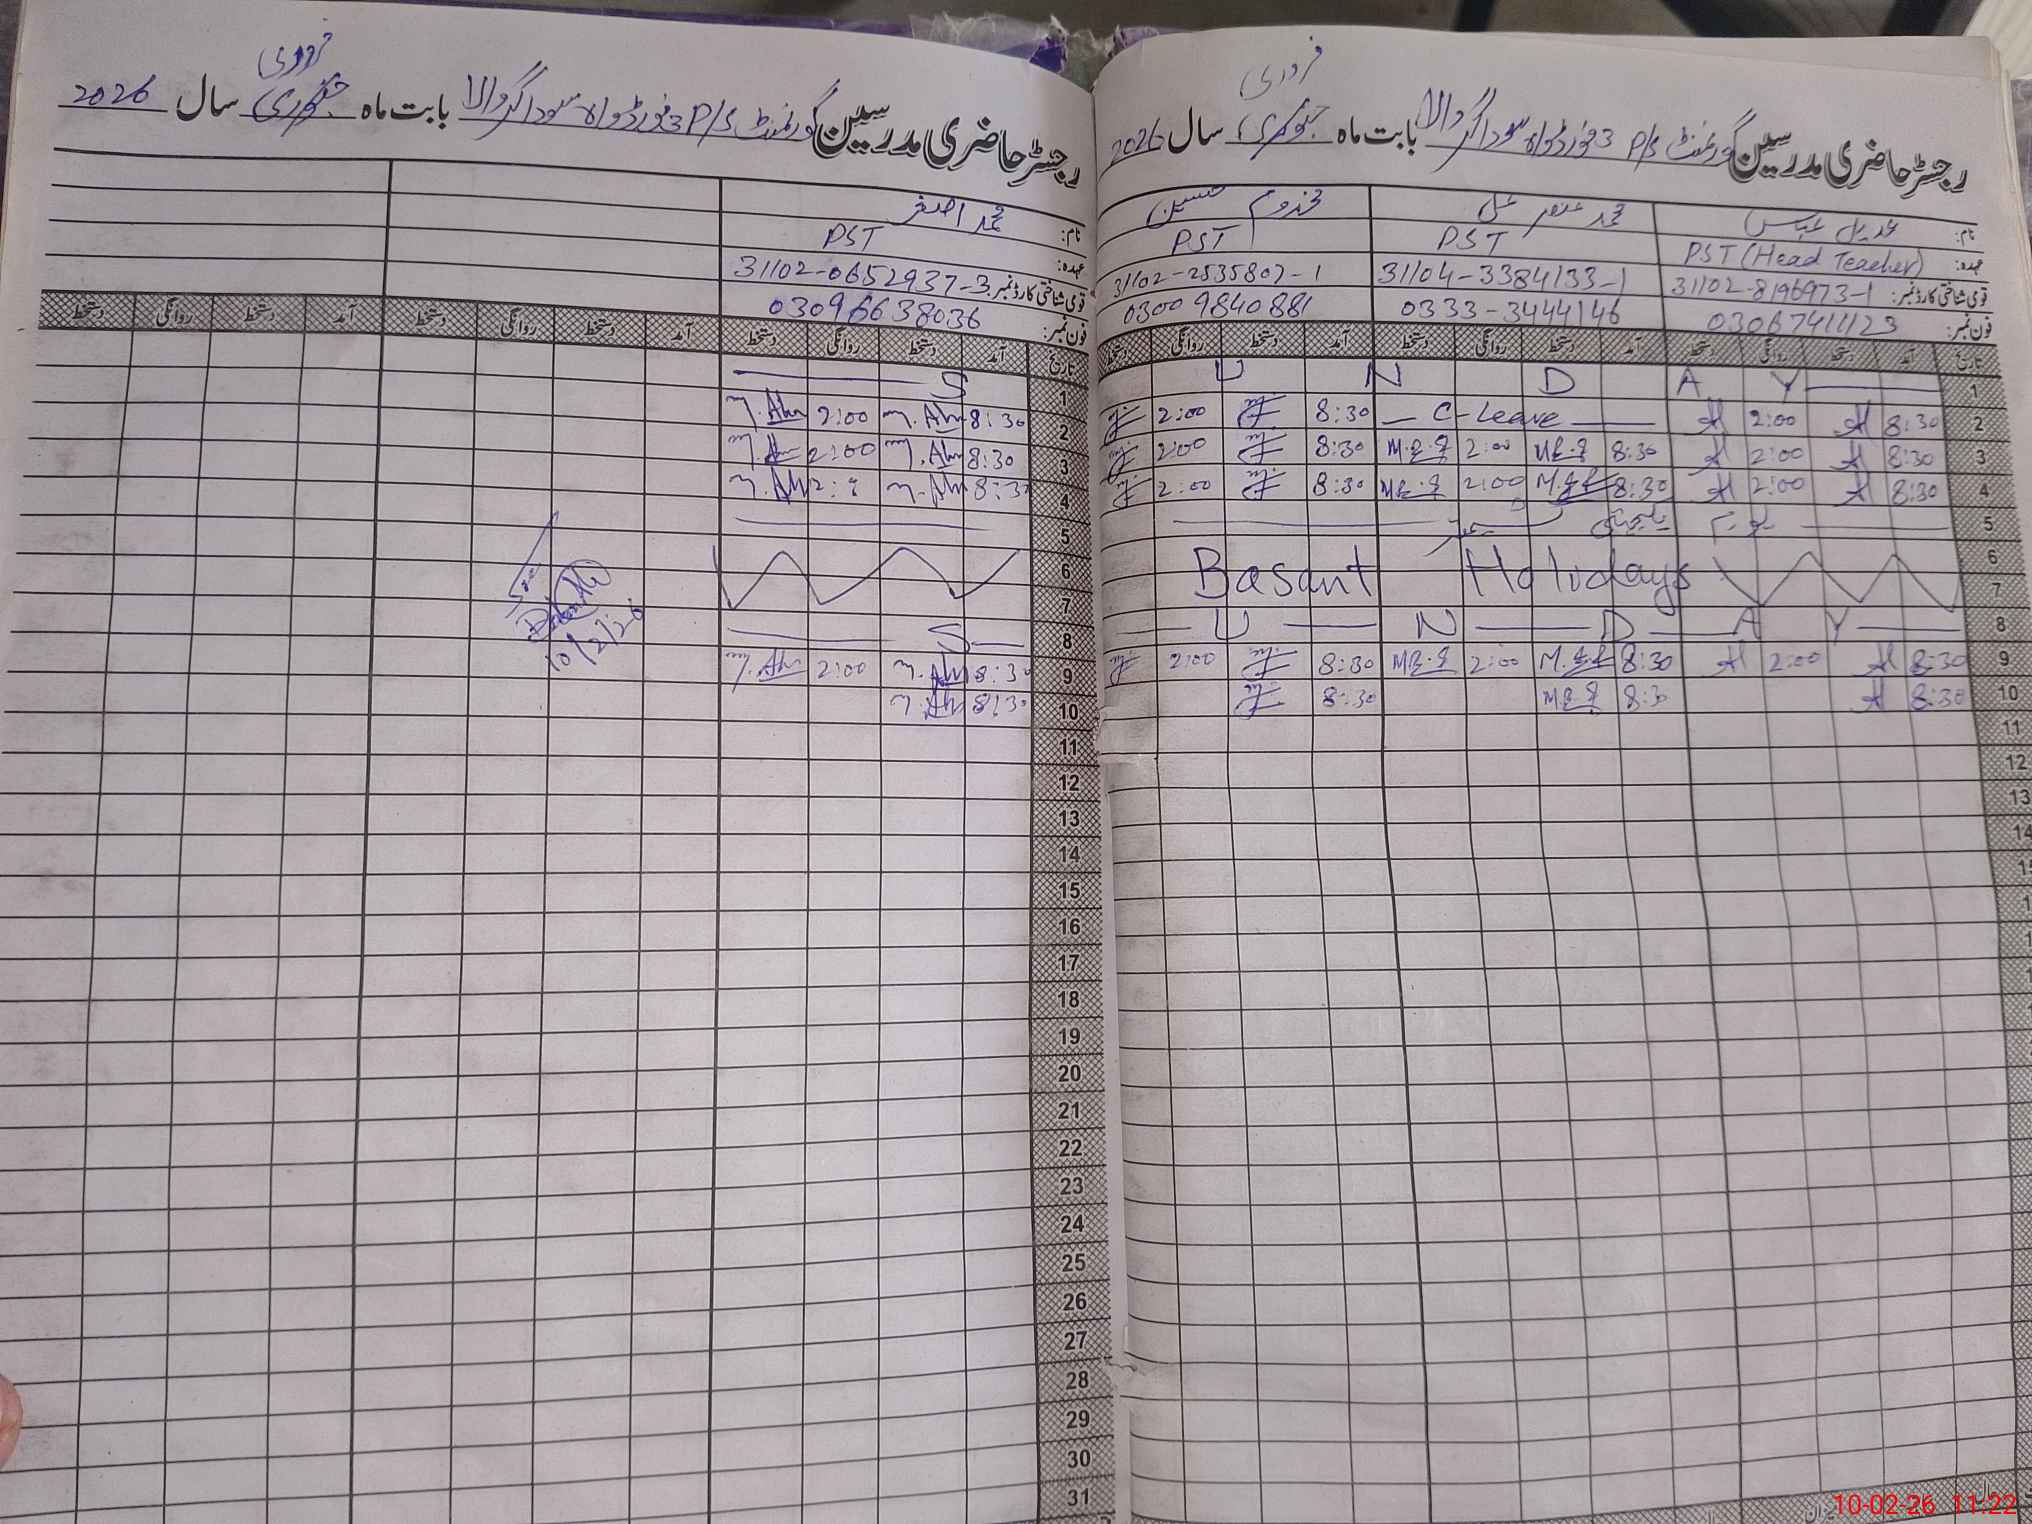 رجسٹر حاضری مدرسین گورنمنٹ P/S 3 فورڈواہ سوداگر والا بابت ماہ جنوری فروری سال 2026
نام: عدیل عباس محمد صفدر علی مخدوم حسین
عہدہ: PST (Head Teacher) PST PST
قومی شناختی کارڈ نمبر: 31102-8196973-1 31104-3384133-1 31102-2535807-1
فون نمبر: 03067411123 0333-3444146 0300 9840881
تاریخ آمد دستخط روانگی دستخط آمد دستخط روانگی دستخط آمد دستخط روانگی دستخط
1 U N D A Y
2 8:30 2:00 C-Leave 8:30 2:00
3 8:30 2:00 8:30 2:00 8:30 2:00
4 8:30 2:00 8:30 2:00 8:30 2:00
5 یوم یکجہتی کشمیر
6 Basant Holidays
7
8 U N D A Y
9 8:30 2:00 8:30 2:00 8:30 2:00
10 8:30 8:30 8:30
11
12
13
14
رجسٹر حاضری مدرسین گورنمنٹ P/S 3 فورڈواہ سوداگر والا بابت ماہ جنوری فروری سال 2026
نام: محمد اصغر
عہدہ: PST
قومی شناختی کارڈ نمبر: 31102-0652937-3
فون نمبر: 03096638036
تاریخ آمد دستخط روانگی دستخط آمد دستخط روانگی دستخط آمد دستخط روانگی دستخط
1 S
2 8:30 2:00
3 8:30 2:00
4 8:30
5
6
7
8 S
9 8:30 2:00
10 8:30
10/2/26
11
12
13
14
15
16
17
18
19
20
21
22
23
24
25
26
27
28
29
30
31
10-02-26 11:22